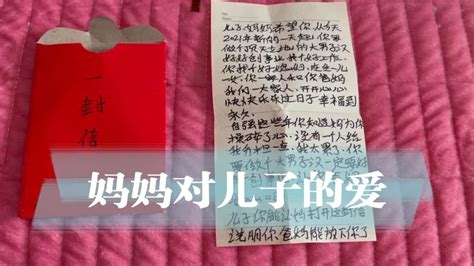 一封信
儿子妈妈希望你从今天
2021年新的一天起你要
做个顶天立地的大男子汉
好好创事业 找个好工作,
你找个好媳妇 生一儿
一女. 你一家人和你爸妈
我们一大家人. 开开心心
快快乐乐 日子幸福到
永久.
这些年你知道妈为你
操碎了心. 没有一个人给
我分担一点. 我太累了. 你
要做个大男子汉一定要好
妈妈对儿子的爱
儿子你能让妈打开这封信
说明你爸妈能放下你了